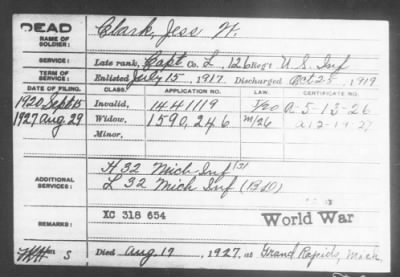 DEAD
NAME OF SOLDIER: Clark, Jess W.
SERVICE: Late rank, Capt Co. L, 126 Reg't U.S. Inf
TERM OF SERVICE: Enlisted July 15, 1917. Discharged Oct 28, 1919
DATE OF FILING. CLASS. APPLICATION NO. LAW. CERTIFICATE NO.
1920 Sept 15 Invalid, 1441119 A-5-13-26
1927 Aug 29 Widow, 1590,246 m/26 12-19-27
Minor,
ADDITIONAL SERVICES: H 32 Mich Inf
L 32 Mich Inf
REMARKS: XC 318 654 World War
S Died Aug 17, 1927, at Grand Rapids, Mich